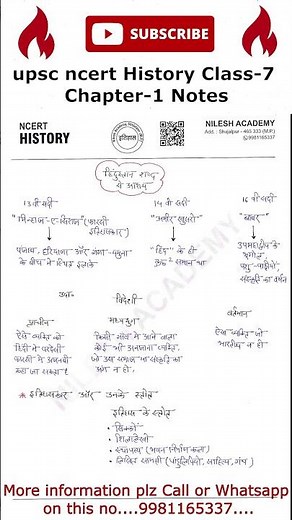 SUBSCRIBE
upsc ncert History Class-7
Chapter-1 Notes
NCERT
HISTORY
इतिहास
NILESH ACADEMY
Add : Shujalpur - 465 333 (M.P.)
9981165337
हिंदुस्तान शब्द
से आशय
13 वी सदी
14 वी सदी
16 वी सदी
"मिन्हाज-ए-सिराज" (फारसी
इतिहासकार)
"अमीर खुसरो"
"बाबर"
पंजाब, हरियाणा और गंगा-यमुना
के बीच में स्थित इलाके
"हिंद" के ही
समान था
उपमहाद्वीप के
भूगोल,
पशु-पक्षियों,
संस्कृति का वर्णन
विदेशी
प्राचीन
मध्ययुग
वर्तमान
ऐसे व्यक्ति को
हिंदी में परदेसी
फारसी में अजनबी
कहा जा सकता
किसी गांव में आने वाला
कोई भी अनजाना व्यक्ति,
जो उस समाज या संस्कृति का
अंग न हो
ऐसा व्यक्ति जो
भारतीय न हो
* इतिहासकार और उनके स्रोत
इतिहास के स्रोत
• सिक्कों
• शिलालेखों
• स्थापत्य (भवन निर्माण कला)
• लिखित सामग्री (पांडुलिपियों, साहित्य, ग्रंथ)
NILESH ACADEMY
More information plz Call or Whatsapp
on this no....9981165337....